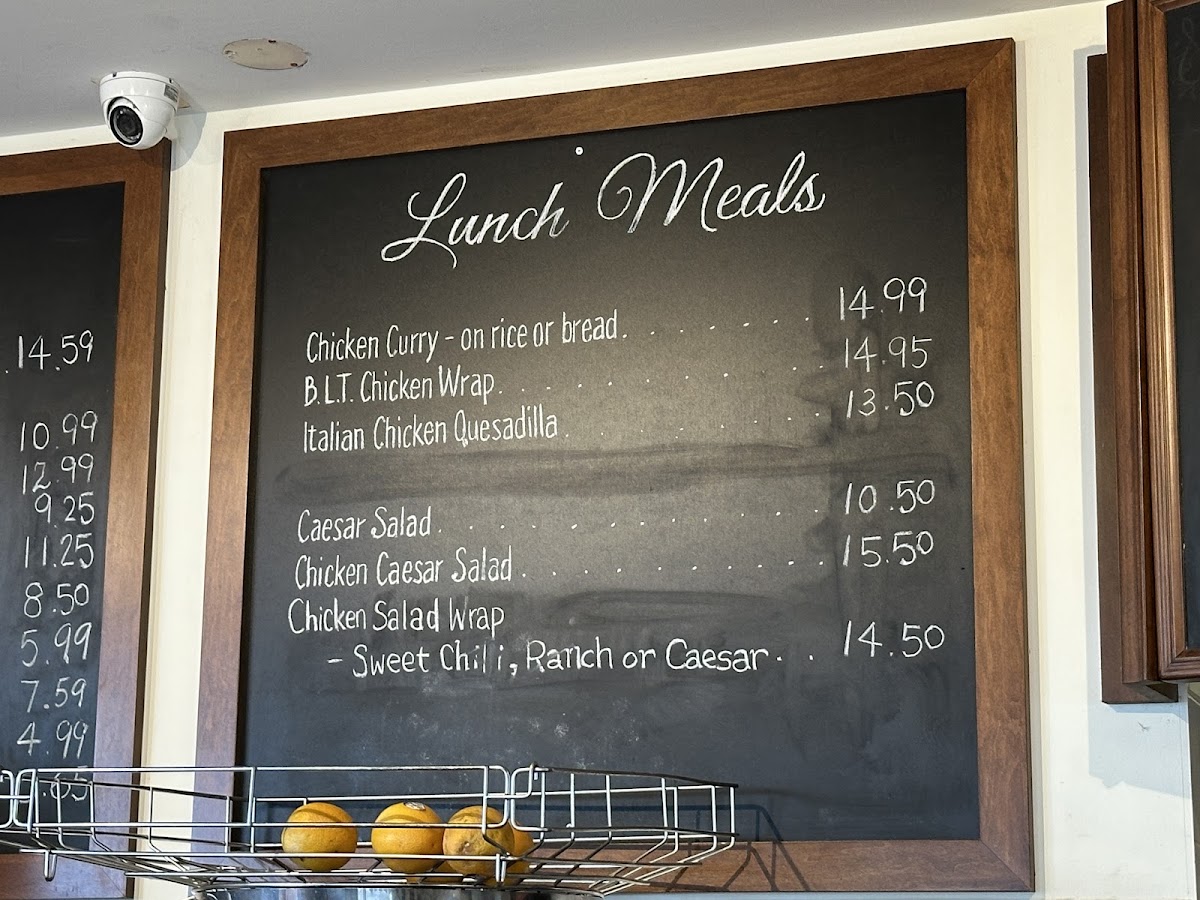 Lunch Meals
Chicken Curry - on rice or bread . . . . . . . 14.99
B.L.T. Chicken Wrap . . . . . . . . . . . 14.95
Italian Chicken Quesadilla . . . . . . . . . 13.50
Caesar Salad . . . . . . . . . . . 10.50
Chicken Caesar Salad . . . . . . . . . . 15.50
Chicken Salad Wrap
- Sweet Chili, Ranch or Caesar . . 14.50
14.59
10.99
12.99
9.25
11.25
8.50
5.99
7.59
4.99